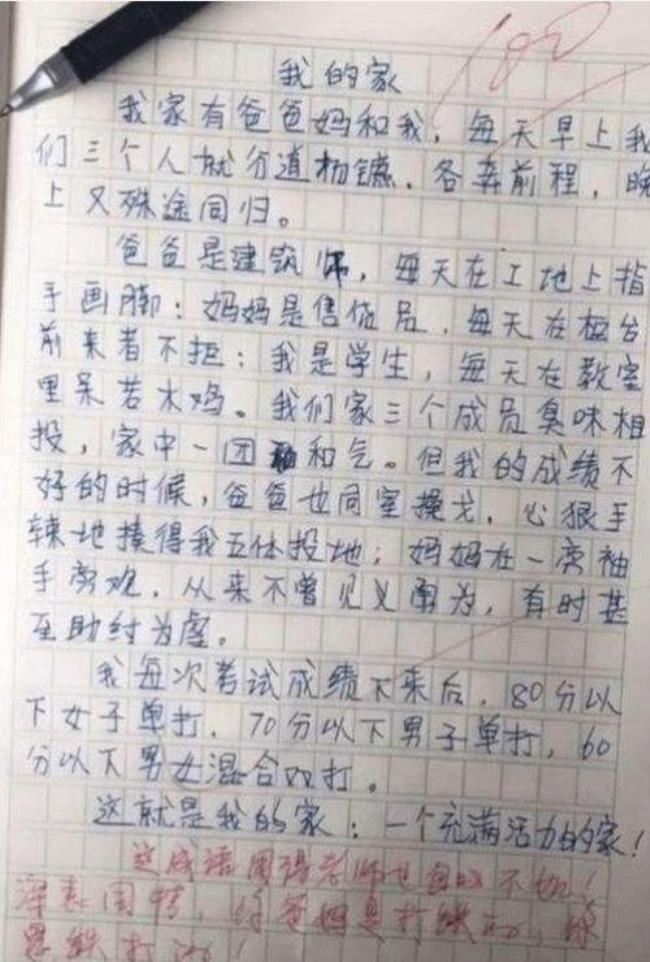 100
我的家
我家有爸爸妈和我，每天早上我
们三个人就分道杨镳，各奔前程，晚
上又殊途同归。
爸爸是建筑师，每天在工地上指
手画脚；妈妈是售货员，每天在柜台
前来者不拒；我是学生，每天在教室
里呆若木鸡。我们家三个成员臭味相
投，家中一团和气。但我的成绩不
好的时候，爸爸也同室操戈，心狠手
辣地揍得我五体投地；妈妈在一旁袖
手旁观，从来不曾见义勇为，有时甚
至助纣为虐。
我每次考试成绩下来后，80分以
下女子单打，70分以下男子单打，60
分以下男女混合双打。
这就是我的家：一个充满活力的家！
这成语用得老师也自叹不如！
深表同情，你爸妈是打铁的，你
是铁打的！